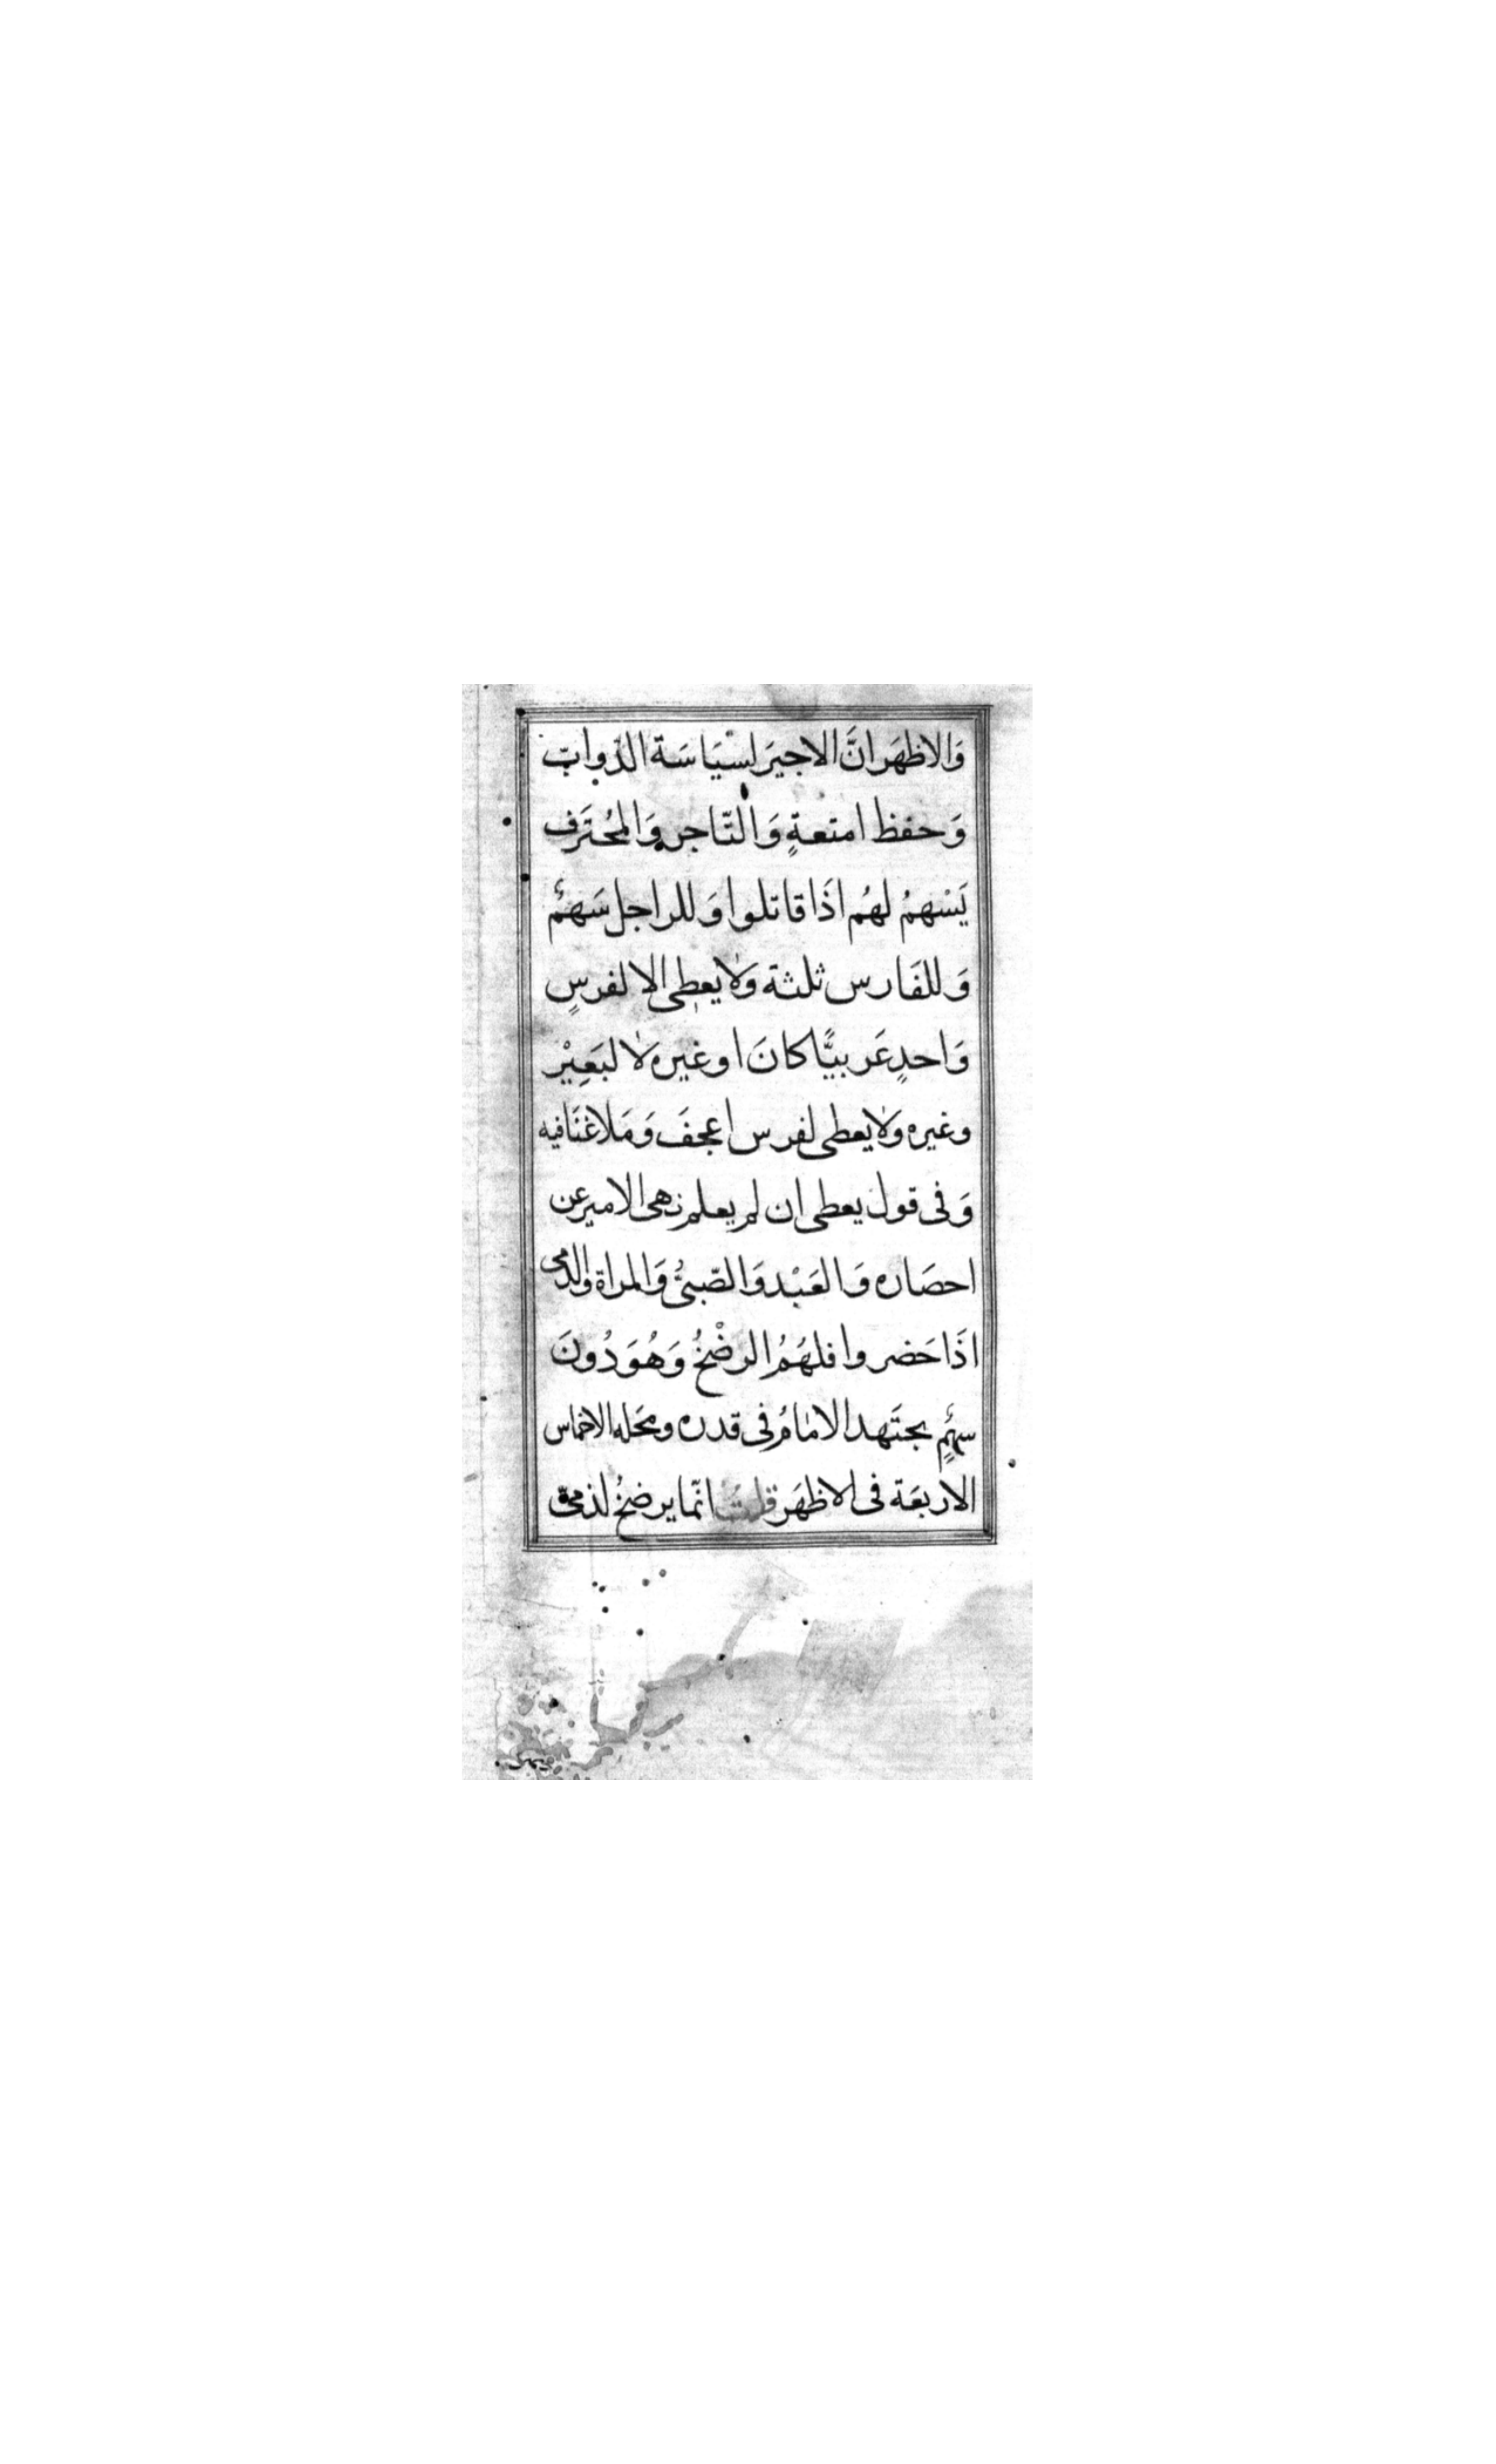 وَالاظهَر انَّ الاجيَر لسْيَاسَة الدّوابّ
وَحفظ امتعةٍ وَالتّاجر وَالمحُتَرف
يَسْهمُ لهُم اذَا قاتلوا وَللراجل سَهمٌ
وَللفَارس ثلثة وَلايعطى الا لفرسٍ
وَاحدٍ عَربيًّا كانَ اوغيره لا لبَعِيْر
وغيره ولايعطى لفرس اعجفَ وَمَلاغنَافيه
وَفى قول يعطى ان لم يعلم نهى الامير عن
احصَاره وَالعَبْد وَالصّبىُّ وَالمراة والذمى
اذَا حَضروا فلهُمُ الرضْخُ وَهُوَدُونَ
سهمٍ يجتَهد الامَامُ فى قدره ومحَله الاخماس
الاربعَة فى الاظهَر قلتُ انّما يرضخُ لذمىّ